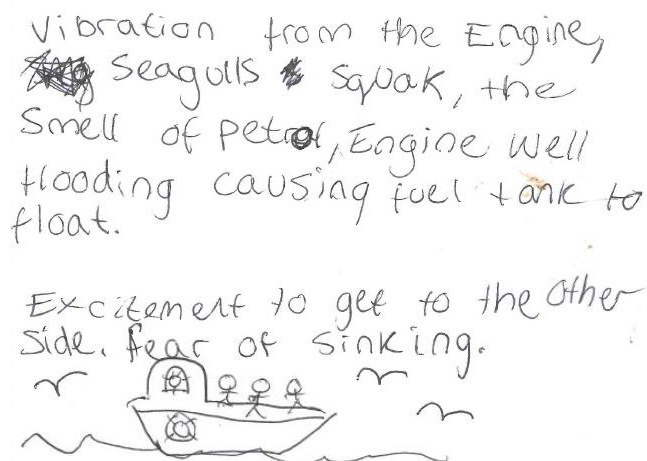 Vibration from the Engine,
Seagulls SqUak, the
Smell of petrol, Engine Well
flooding causing fuel tank to
float.
Excitement to get to the Other
Side. fear of sinking.